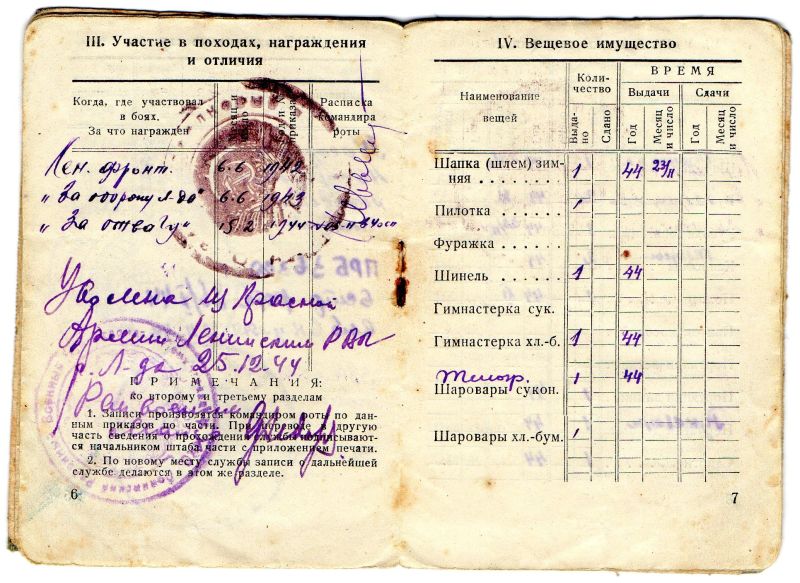 III. Участие в походах, награждения
и отличия
Когда, где участвовал
в боях.
За что награжден
приказа
Расписка
командира
роты
Лен. фронт. 6.6 1942
"За оборону Л-да" 6.6 1943
"За отвагу" 15.2 1944
Уволена из Красной
Армии Ленинским РВК
г. Л-да 25.12.44
ПРИМЕЧАНИЯ:
ко второму и третьему разделам
1. Записи производятся командиром роты по дан-
ным приказов по части. При переводе в другую
часть сведения о прохождении службы подписывают-
ся начальником штаба части с приложением печати.
2. По новому месту службы записи о дальнейшей
службе делаются в этом же разделе.
6
IV. Вещевое имущество
Наименование
вещей
Коли-
чество
ВРЕМЯ
Выдачи
Сдачи
Выда-
но
Сдано
Год
Месяц
и число
Год
Месяц
и число
Шапка (шлем) зим-
няя . . . . . . . . 1 44 23/II
Пилотка . . . . . . 1
Фуражка . . . . . .
Шинель . . . . . . 1 44
Гимнастерка сук.
Гимнастерка хл.-б. 1 44
Телогр. 1 44
Шаровары сукон.
Шаровары хл.-бум. 1
7